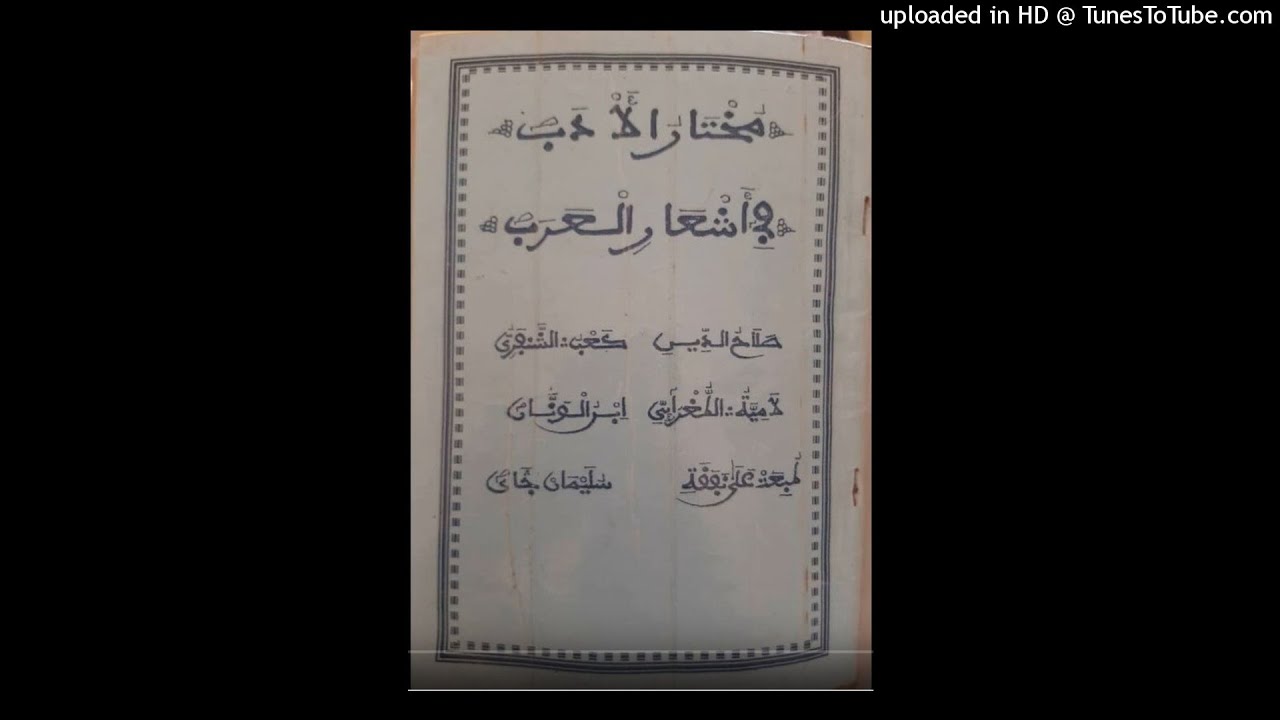 uploaded in HD @ TunesToTube.com
مُخْتَارَالْأَدَبِ
فِي أَشْعَارِالْعَرَبِ
صَلَاحُ الدِّينِ كَعْبُ: الشَّنْفَرَى
لَامِيَّةُ: الطُّغْرَائِيِّ اِبْنُ الْوَفَّاىِ
طُبِعَتْ عَلَى نَفَقَةِ سُلَيْمَان